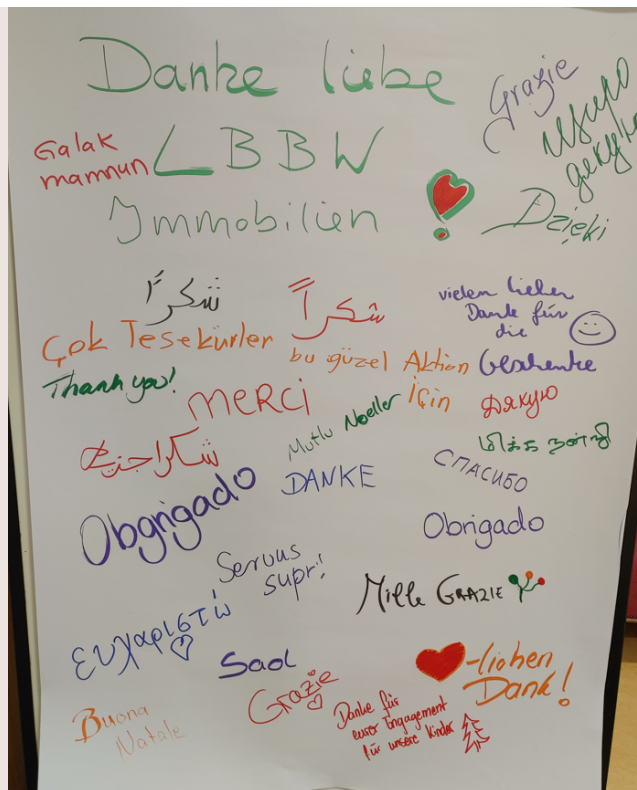 Danke liebe
Grazie
Щиро
дякую
Galak
mamnun
LBBW
Immobilien
Dzięki
شكرًا
شكراً
vielen lieben
Dank für
die
Geschenke
Çok Tesekürler
bu güzel Aktion
için
Thank you!
MERCI
Дякую
Mutlu Noeller
மிக்க நன்றி
شكرا
DANKE
СПАСИБО
Obgrigado
Obrigado
Servus
supr!
Mille GRAZIE
ευχαριστώ
Saol
-lichen
Dank!
Grazie
Danke für
euer Engagement
für unsere Kinder
Buona
Natale